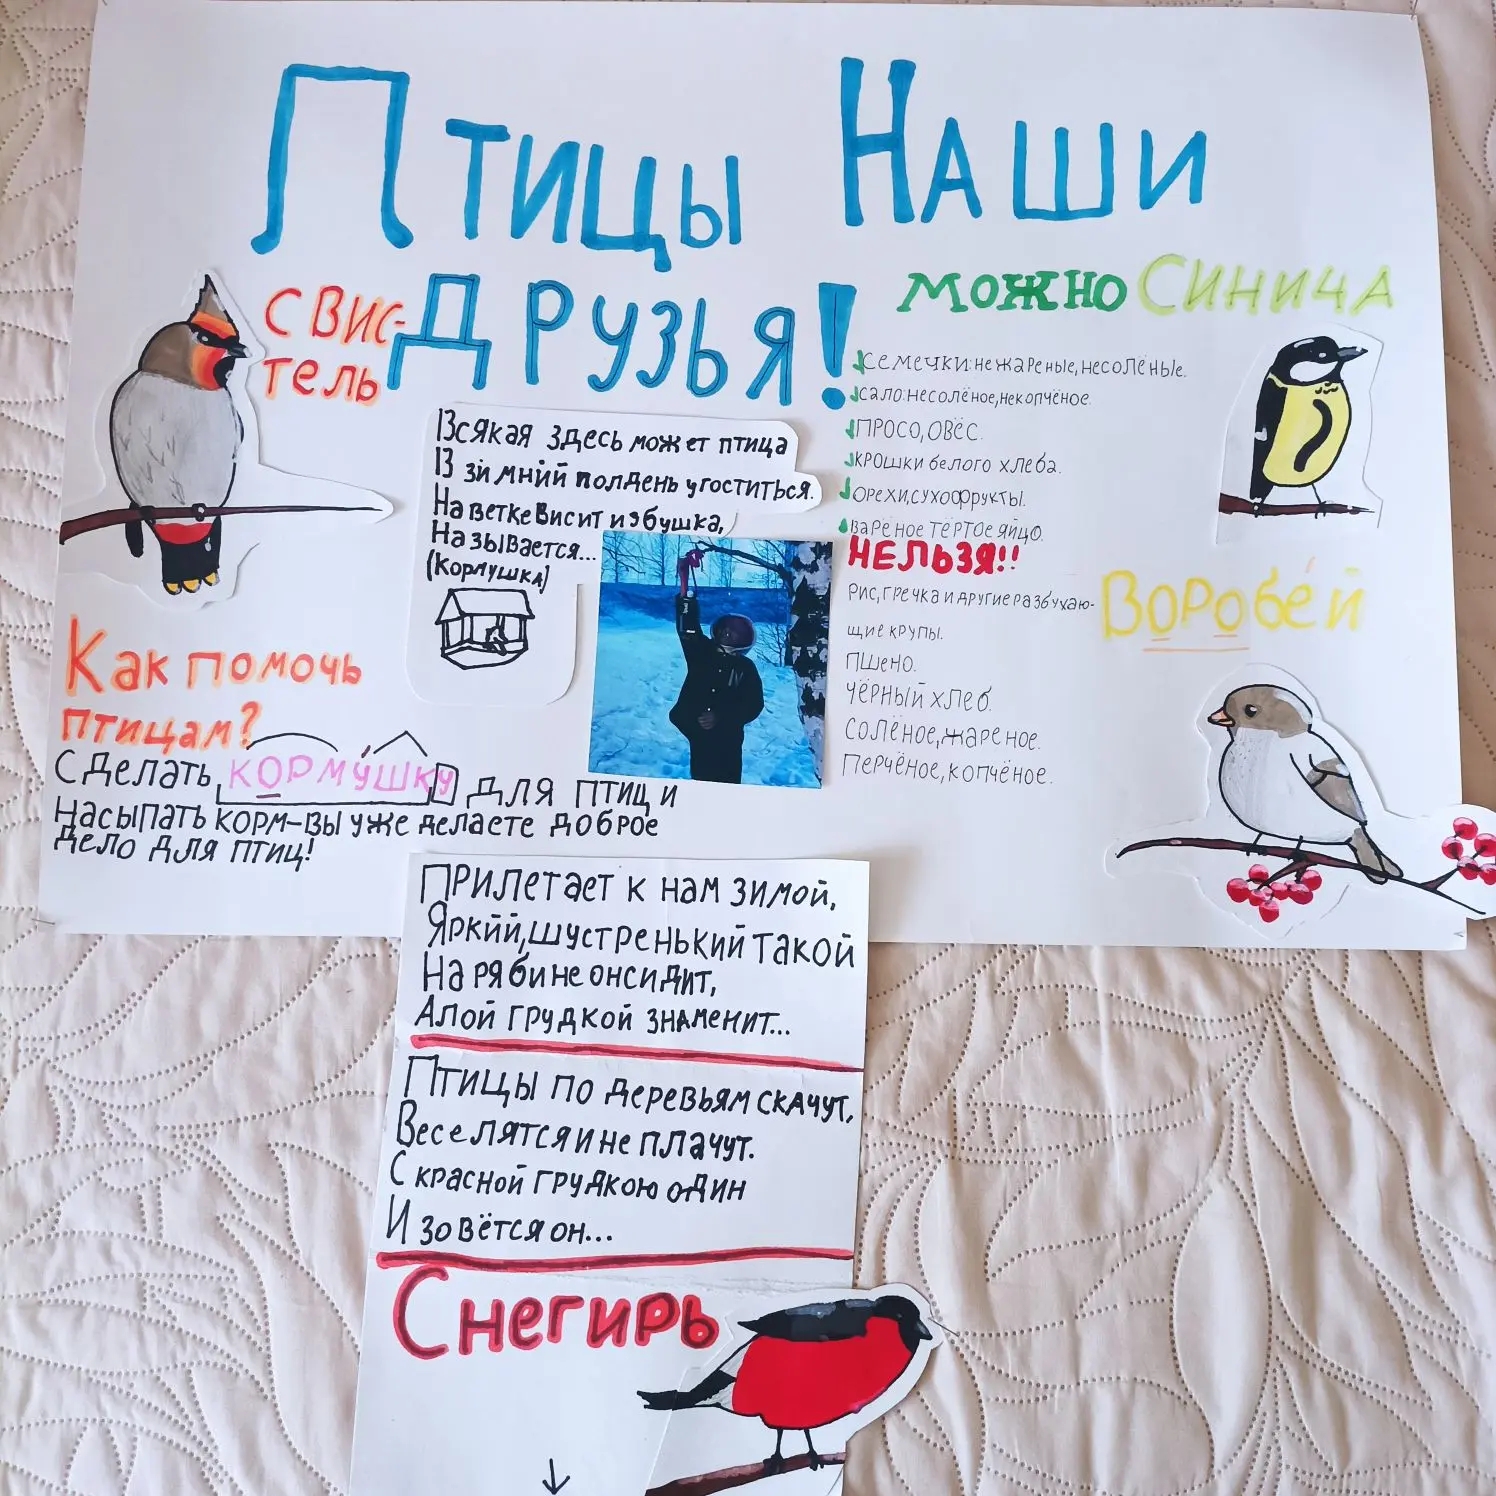 Птицы Наши
Друзья!
Свис-
тель
Всякая здесь может птица
В зимний полдень угоститься.
На ветке висит избушка,
Называется...
(Кормушка)
Как помочь
птицам?
Сделать кормушку для птиц и
насыпать корм-вы уже делаете доброе
дело для птиц!
можно
семечки: нежареные, несолёные.
сало: несолёное, некопчёное.
просо, овёс.
крошки белого хлеба.
орехи, сухофрукты.
варёное тёртое яйцо.
НЕЛЬЗЯ!!
Рис, гречка и другие разбухаю-
щие крупы.
Пшено.
Чёрный хлеб.
Солёное, жареное.
Перчёное, копчёное.
Синица
Воробе́й
Прилетает к нам зимой,
Яркий, шустренький такой
На рябине он сидит,
Алой грудкой знаменит...
Птицы по деревьям скачут,
Веселятся и не плачут.
С красной грудкою один
И зовётся он...
Снегирь